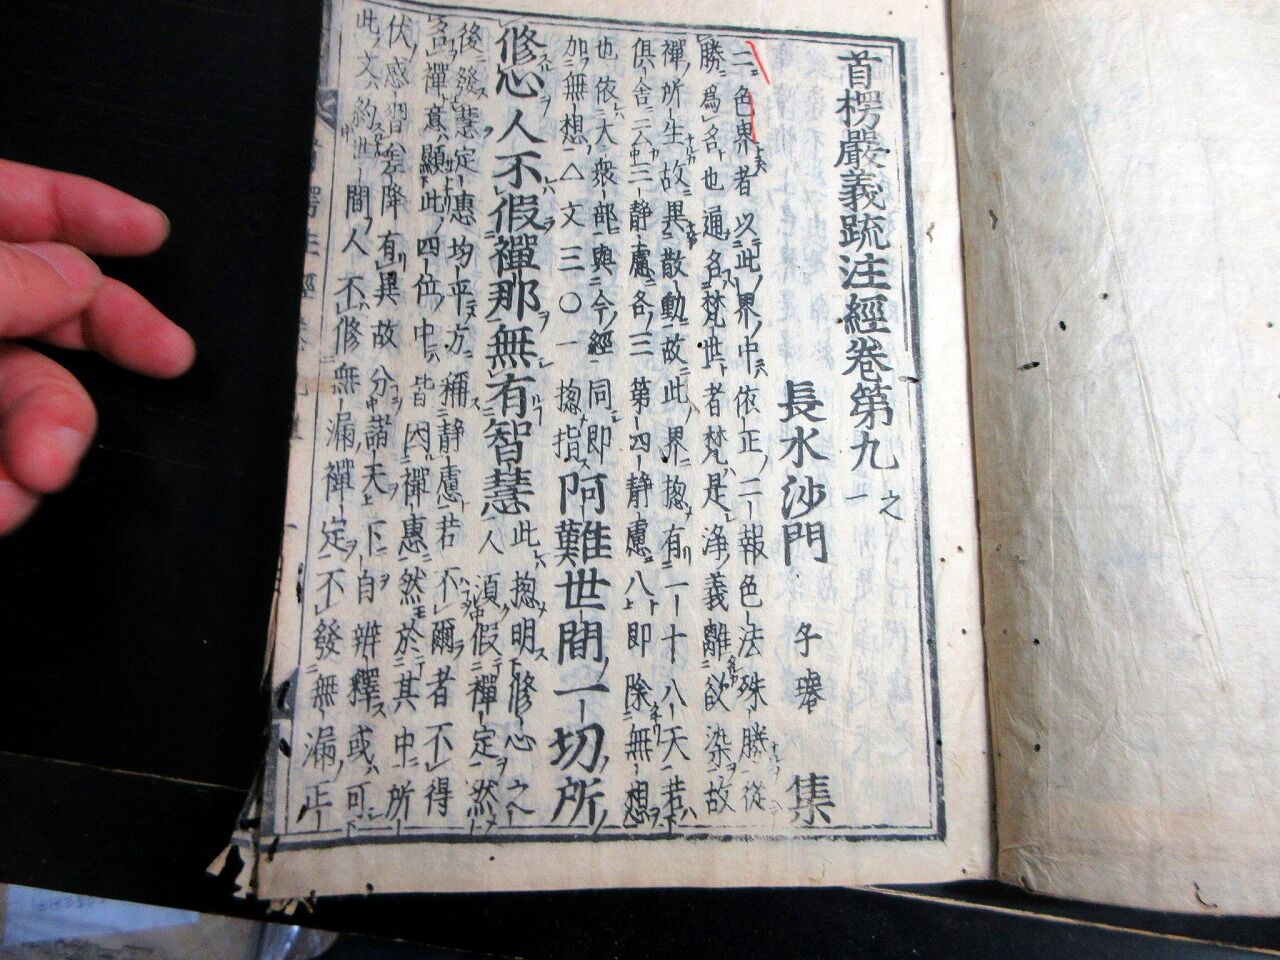 首楞嚴義疏注經卷第九 之一
長水沙門 子璿 集
二色界者以此界中依正二報色法殊勝從
勝爲名也通名梵世者梵是淨義離欲染故
禪所生故異散動故此界揔有一十八天若
俱舍云中三靜慮各三第四靜慮八即除無想
也依大衆部與今經同即
加無想△文三〇一揔指
阿難世間一切所
修心人不假禪那無有智慧
此揔明修心之
人須假禪定然
後發慧定惠均平方稱靜慮若不爾者不得
名禪意顯此四位中皆因禪惠然於其中所
伏惑習差降有異故分諸天上下自辨釋或可
此文約世間人不修無漏禪定不發無漏正